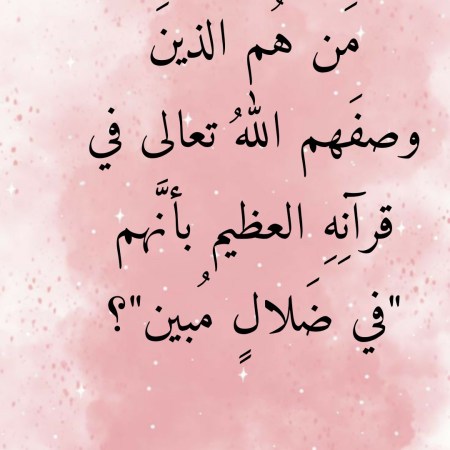 مَن هُم الذينَ
وصفَهم اللهُ تعالى في
قرآنِهِ العظيم بأنَّهم
"في ضَلالٍ مُبين"؟